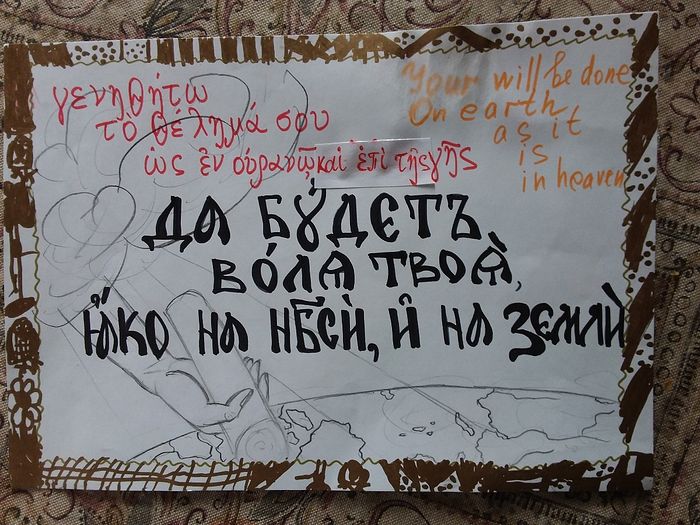 γενηθήτω
τὸ θέλημά σου
ὡς ἐν οὐρανῷ καὶ ἐπὶ τῆς γῆς
Your will be done
On earth
as it
is
in heaven
Да бꙋ́детъ
во́лѧ твоѧ̀,
ꙗ҆́кѡ на нб҃сѝ, и҆ на землѝ